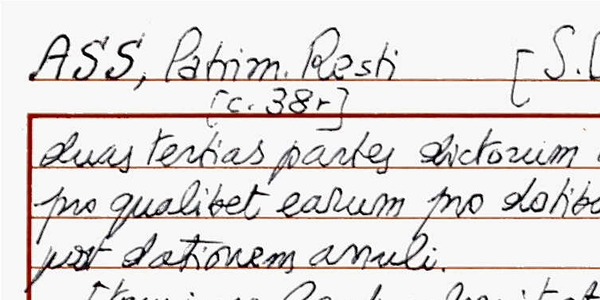 ASS, Patrim. Resti [S.
[c. 38r]
duas tertias partes dictorum
pro qualibet earum pro dotib
post dationem anuli.